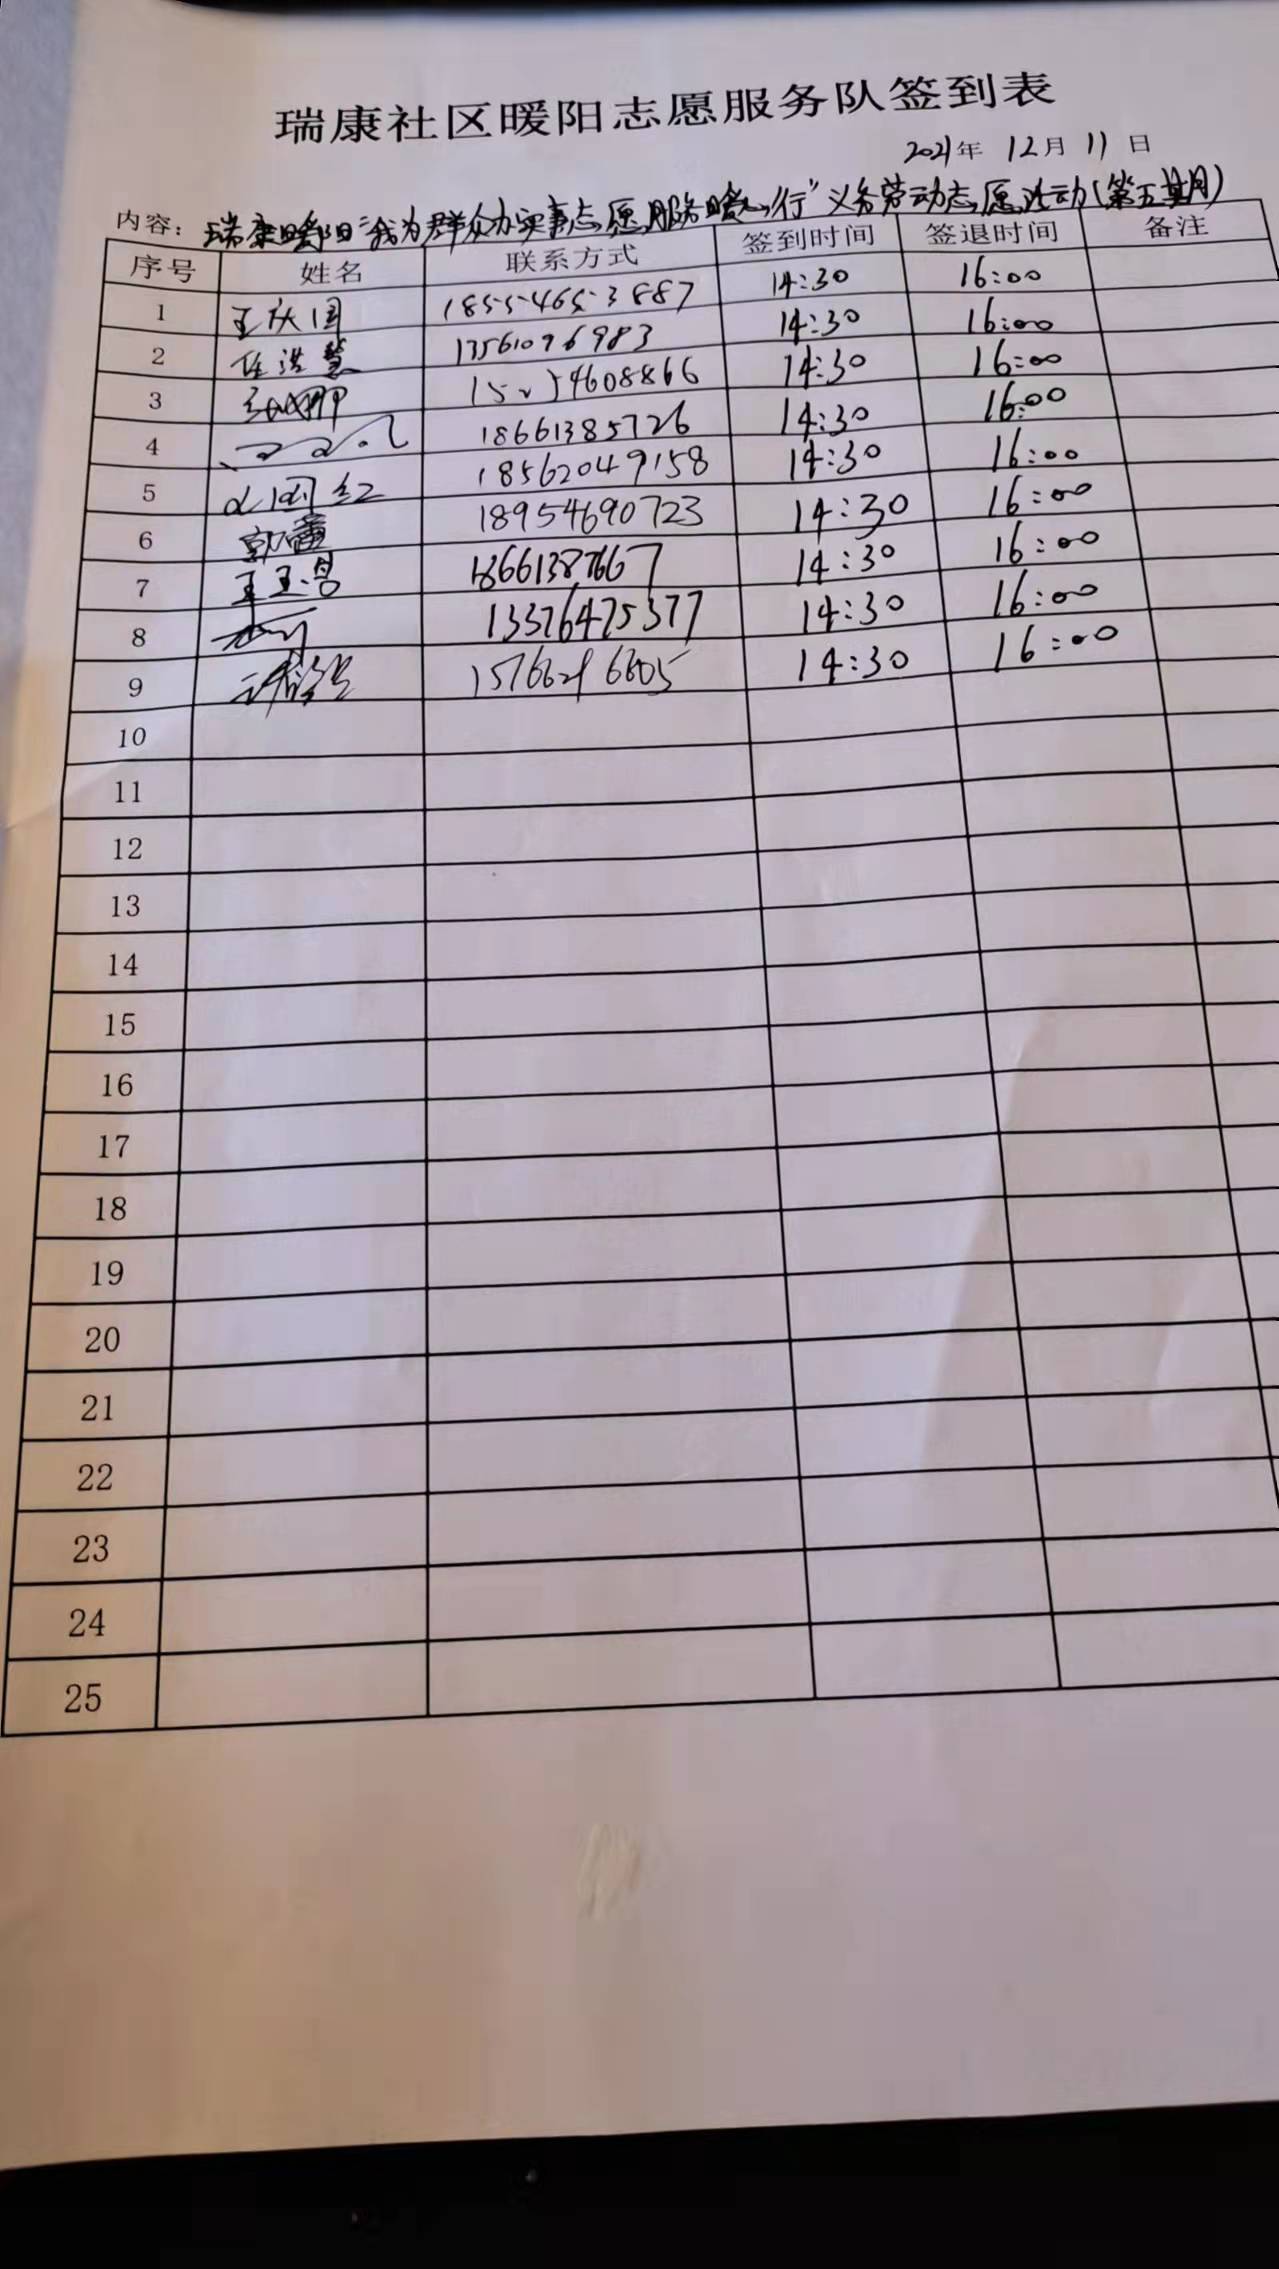 瑞康社区暖阳志愿服务队签到表
2021年 12月 11日
内容：瑞康暖阳“我为群众办实事志愿服务暖心行”义务劳动志愿活动(第五期)
序号 姓名 联系方式 签到时间 签退时间 备注
1 王庆国 18554653887 14:30 16:00
2 任洪慧 13561096983 14:30 16:00
3 4608866 14:30 16:00
4 18661385726 14:30 16:00
5 18562049158 14:30 16:00
6 郭蕾 18954690723 14:30 16:00
7 14:30 16:00
8 13376475377 14:30 16:00
9 14:30 16:00
10
11
12
13
14
15
16
17
18
19
20
21
22
23
24
25